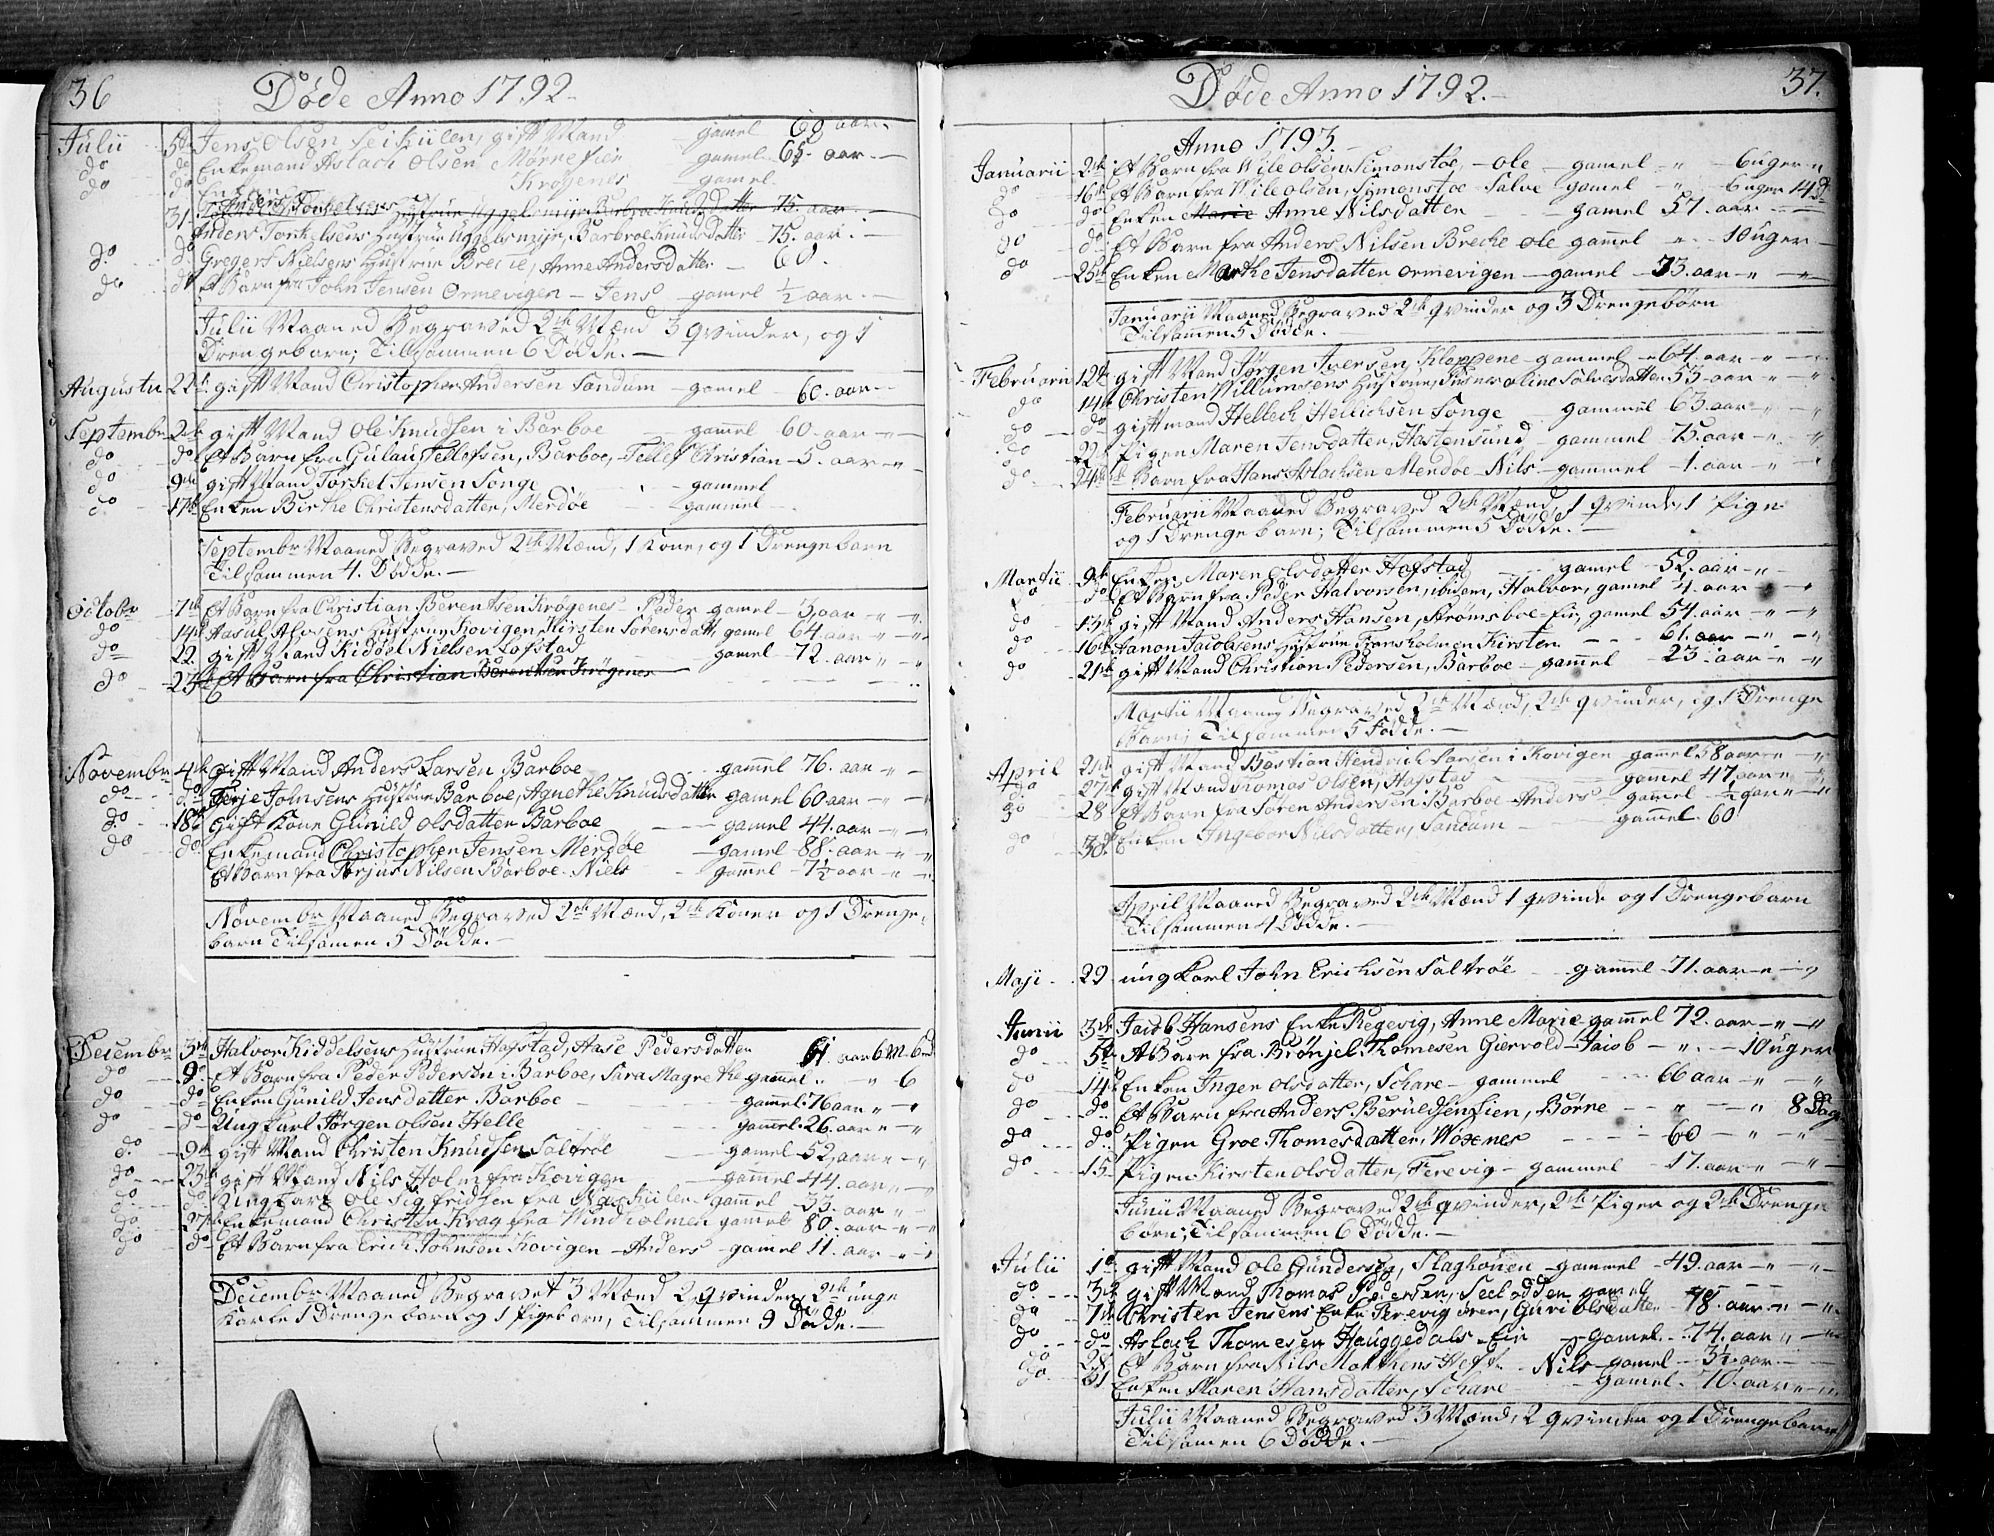 36 Døde Anno 1792.
Julii 5te Jens Olsen Seikulen, gift Mand gamel 60 aar.
do do Enkemand Aslach Olsen Mørnefier gamel 65. aar.
do do Enken Krøgenes gamel.
31. Anders Torkelsens Hustrue Barbroe Knudsdatter 75. aar.
Anders Torkelsens Hustrue Barbroe Knudsdatter 75. aar.
do do Gregers Nielsens Hustrue Brecke, Anne Andersdatter 60.
do do Et Barn fra John Jensen Ormevigen - Jens gamel ½ aar.
Julii Maaned Begraved 2de Mænd 3 qvinder, og 1
Drengebarn; Tilsammen 6 Dødde.
Augustii 22. gift Mand Christopher Andersen Sandum gamel 60. aar
Septembr 2de gift Mand Ole Knudsen i Barboe gamel 60. aar
do do Et Barn fra Gulau Tellefsen, Barboe, Tellef Christian 5. aar
do 9de gift Mand Torkel Jensen Songe gammel
do 17de Enken Birthe Christensdatter, Merdøe gammel
Septembr Maaned Begraved 2de Mænd, 1 Kone, og 1 Drengebarn
Tilsammen 4. Dødde.
Octobr 7de Et Barn fra Christian Berentsen Krøgenes - Peder gamel 3 aar
do 14de Aasul Alvsens Hustrue Kovigen, Kirsten Sørensdatt. gamel 64. aar
do 22. gift Mand Kiddel Nielsen Lofstad gamel 72. aar
do 23de Et Barn fra Christian Berentsen Krøgenes
Novembr 4de Gift Mand Anders Larsen Barboe gammel 76. aar
do do Terje Johnsens Hustrue Barboe, Agnethe Knudsdatter gamel 60 aar
do 18de Gift Kone Gunild Olsdatter Barboe gamel 44. aar
do do Enkemand Christopher Jensen Merdøe gamel 88. aar
Et Barn fra Torjus Nilsen Barboe - Niels gamel 7½ aar
Novembr Maaned Begraved 2de Mænd, 2de Koner og 1 Drenge-
barn Tilsamen 5 Dødde.
Decembr 3de Halvor Kiddelsens Hustrue Hafstad, Aase Pedersdatter 61. aar 6 M.
do 9de Et Barn fra Peder Pedersen i Barboe, Sara Magrethe gammel 6
do do Enken Gunild Jensdatter Barboe gammel 76 aar
do do Ung Karl Jørgen Olsen Helle gammel 26. aar
do 9de gift Mand Christen Knudsen Saltrøe gamel 52, aar
do 23de gift Mand Nils Holm fra Kovigen gammel 44. aar
do do Ung Karl Ole Sigfridsen fra gammel 33. aar
do 27de Enkemand Christen Krag fra Windholmen gamel 80. aar
do do Et Barn fra Erich Johnsen Kovigen - Anders gamel 11. aar
Decembr Maaned Begravet 3 Mænd 2 qvinder, 2de unge
Karle 1 Drengebarn og 1 Pigebarn, Tilsammen 9 Dødde.
Døde Anno 1792. 37.
Anno 1793.
Januarii 2de Et Barn fra Wile Olsen Simonstøe, - Ole gamel 6 uger
do 16de Et Barn fra Wile Olsen, Simonstøe Salve gamel 6 uger 4 d
do do Enken Marie Anne Nilsdatter gamel 57. aar
do do Et Barn fra Anders Nilsen Brecke Ole gamel 10 uger
do 25de Enken Marthe Jensdatter Ormevigen gamel 73. aar
Januarii Maaned Begraved 2de qvinder og 3 Drengebørn
Tilsammen 5 Dødde.
Februarii 12te gift Mand Jørgen Iversen, Kloppene gammel 64. aar
do 14de Christen Willumsens Hustrue, aline Salvesdatter 53. aar
do do gift mand Hellech Hellichsen Songe gammel 63. aar
do 22. Pigen Maren Jensdatter, Hastensund gammel 75. aar
do 24de Et Barn fra Hans Aslachsen Merdøe Nils gammel 1. aar
Februarii Maaned Begraved 2de Mænd, 1 qvinde, 1 Pige
og 1 Drengebarn; Tilsammen 5 Dødde.
Martii 9de Enken Maren Olsdatter Hafstad gamel 52. aar
do do Et Barn fra Peder Halvorsen, ibidem, Halvor, gamel 4. aar
do 13de gift Mand Anders Hansen, Strømsboe-Eie, gamel 54. aar
do 16de Aanon Jacobsens Hustrue Kirsten 61. aar
do 21de gift Mand Christian Pedersen, Barboe gammel 23. aar
Martii Maaned Begraved 2de Mænd, 2de qvinder, og 1 Drenge
Barn; Tilsammen 5 Dødde.
April 21de gift Mand Bastian Hendrich Larsen i Kovigen gammel 58 aar
do 27de gift Mand Tomas Olsen, Hafstad gamel 47. aar
do 28 Et Barn fra Søren Andersen i Barboe - Anders gammel ½ aar
do 30de Enken Ingebor Nilsdatter, Sandum gammel 60
April Maaned Begraved 2de Mænd 1 qvinde og 1 Drengebarn
Tilsammen 4 Dødde.
Maji 29. ung Karl John Erichsen Saltrøe gammel 71. aar
Junii 3de Jacob Hansens Enke Regevig, Anne Marie gammel 72. aar
do 5te Et Barn fra Brønjel Thomesen Giervold - Jacob 10 uger
do 14de Enken Inger Olsdatter, Schare gammel 66 aar
do do Et Barn fra Anders Børne 8 Dage
do do Pigen Groe Thomesdatter, Woxnes 60
do 15. Pigen Kirsten Olsdatter, Ferevig gammel 17. aar
Junii Maaned Begraved 2de qvinder, 2de Piger og 2de Drenge
børn; Tilsammen 6 Dødde.
Julii 1de gift Mand Ole Gundersen, gammel 49. aar
do 3de gift Mand Thomas Pedersen, gamel
do 7de Christen Jensens Enke Ferevig øren, Guri Olsdatter 78. aar
do do Aslach Thomesen Hauggedals Eie gamel 74. aar
do 28 Et Barn fra Nils Mathiens Heft Nils gamel 3½ aar
do 31 Enken Maren Hansdatter, Schare gamel 70. aar
Julii Maaned Begraved 3 Mænd, 2 qvinder og 1 Drengebarn
Tilsamen 6 Dødde.